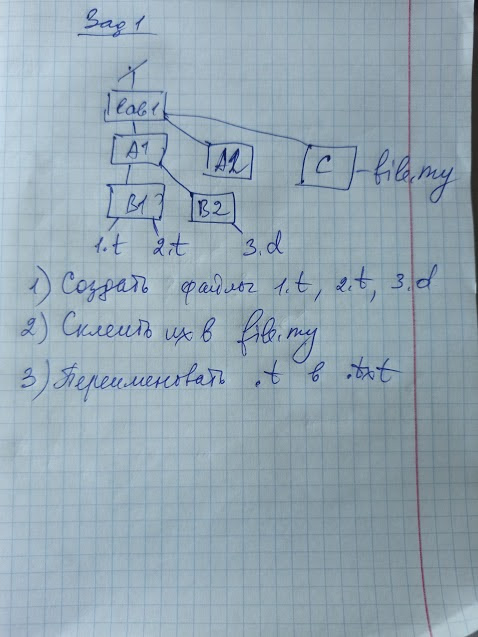 Зад 1
Lab1
A1
A2
C - file.my
B1
B2
1.t 2.t 3.d
1) Создать файлы 1.t, 2.t, 3.d
2) Склеить их в file.my
3) Переименовать .t в .txt